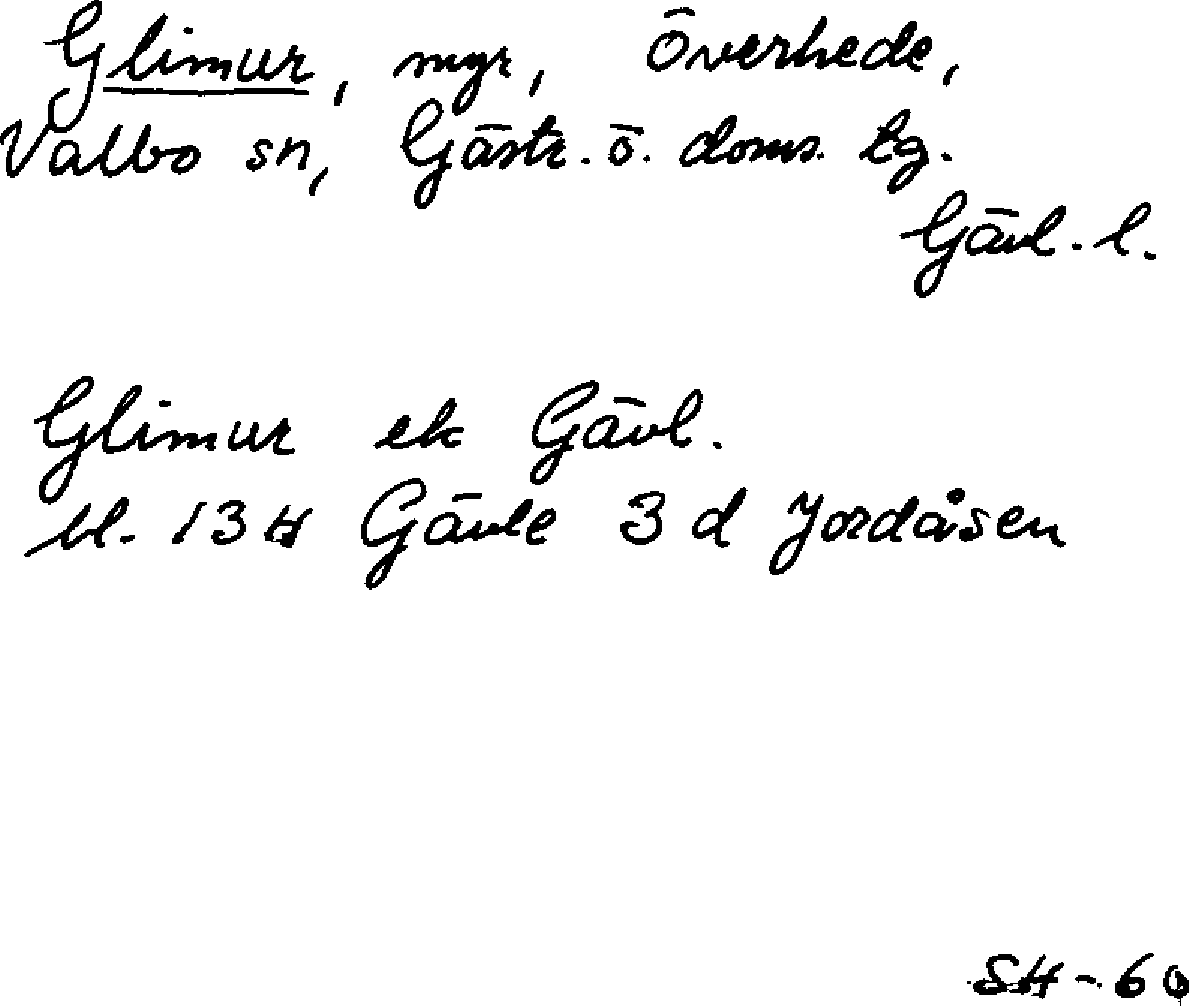 Glimur, myr, Överhede,
Valbo sn, Gästr. ö. doms. tg.
Gävl. l.
Glimur ek Gävl.
bl. 13 H Gävle 3 d Jordåsen
SH-60